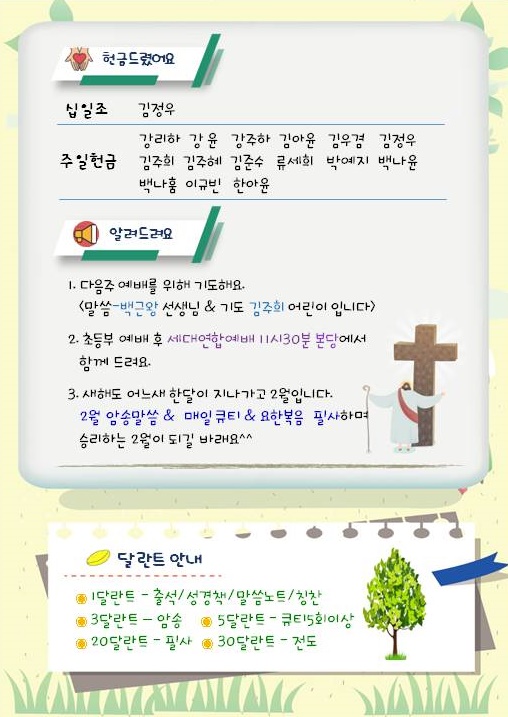 헌금드렸어요
십일조 김정우
주일헌금 강리하 강 윤 강주하 김아윤 김우겸 김정우
김주희 김주혜 김준수 류세희 박예지 백나윤
백나훔 이규빈 한아윤
알려드려요
1. 다음주 예배를 위해 기도해요.
<말씀-백근왕 선생님 & 기도 김주희 어린이 입니다>
2. 초등부 예배 후 세대연합예배 11시30분 본당에서
함께 드려요.
3. 새해도 어느새 한달이 지나가고 2월입니다.
2월 암송말씀 & 매일 큐티 & 요한복음 필사하며
승리하는 2월이 되길 바래요^^
달란트 안내
1달란트 - 출석/성경책/말씀노트/칭찬
3달란트 – 암송 5달란트 - 큐티5회이상
20달란트 - 필사 30달란트 - 전도